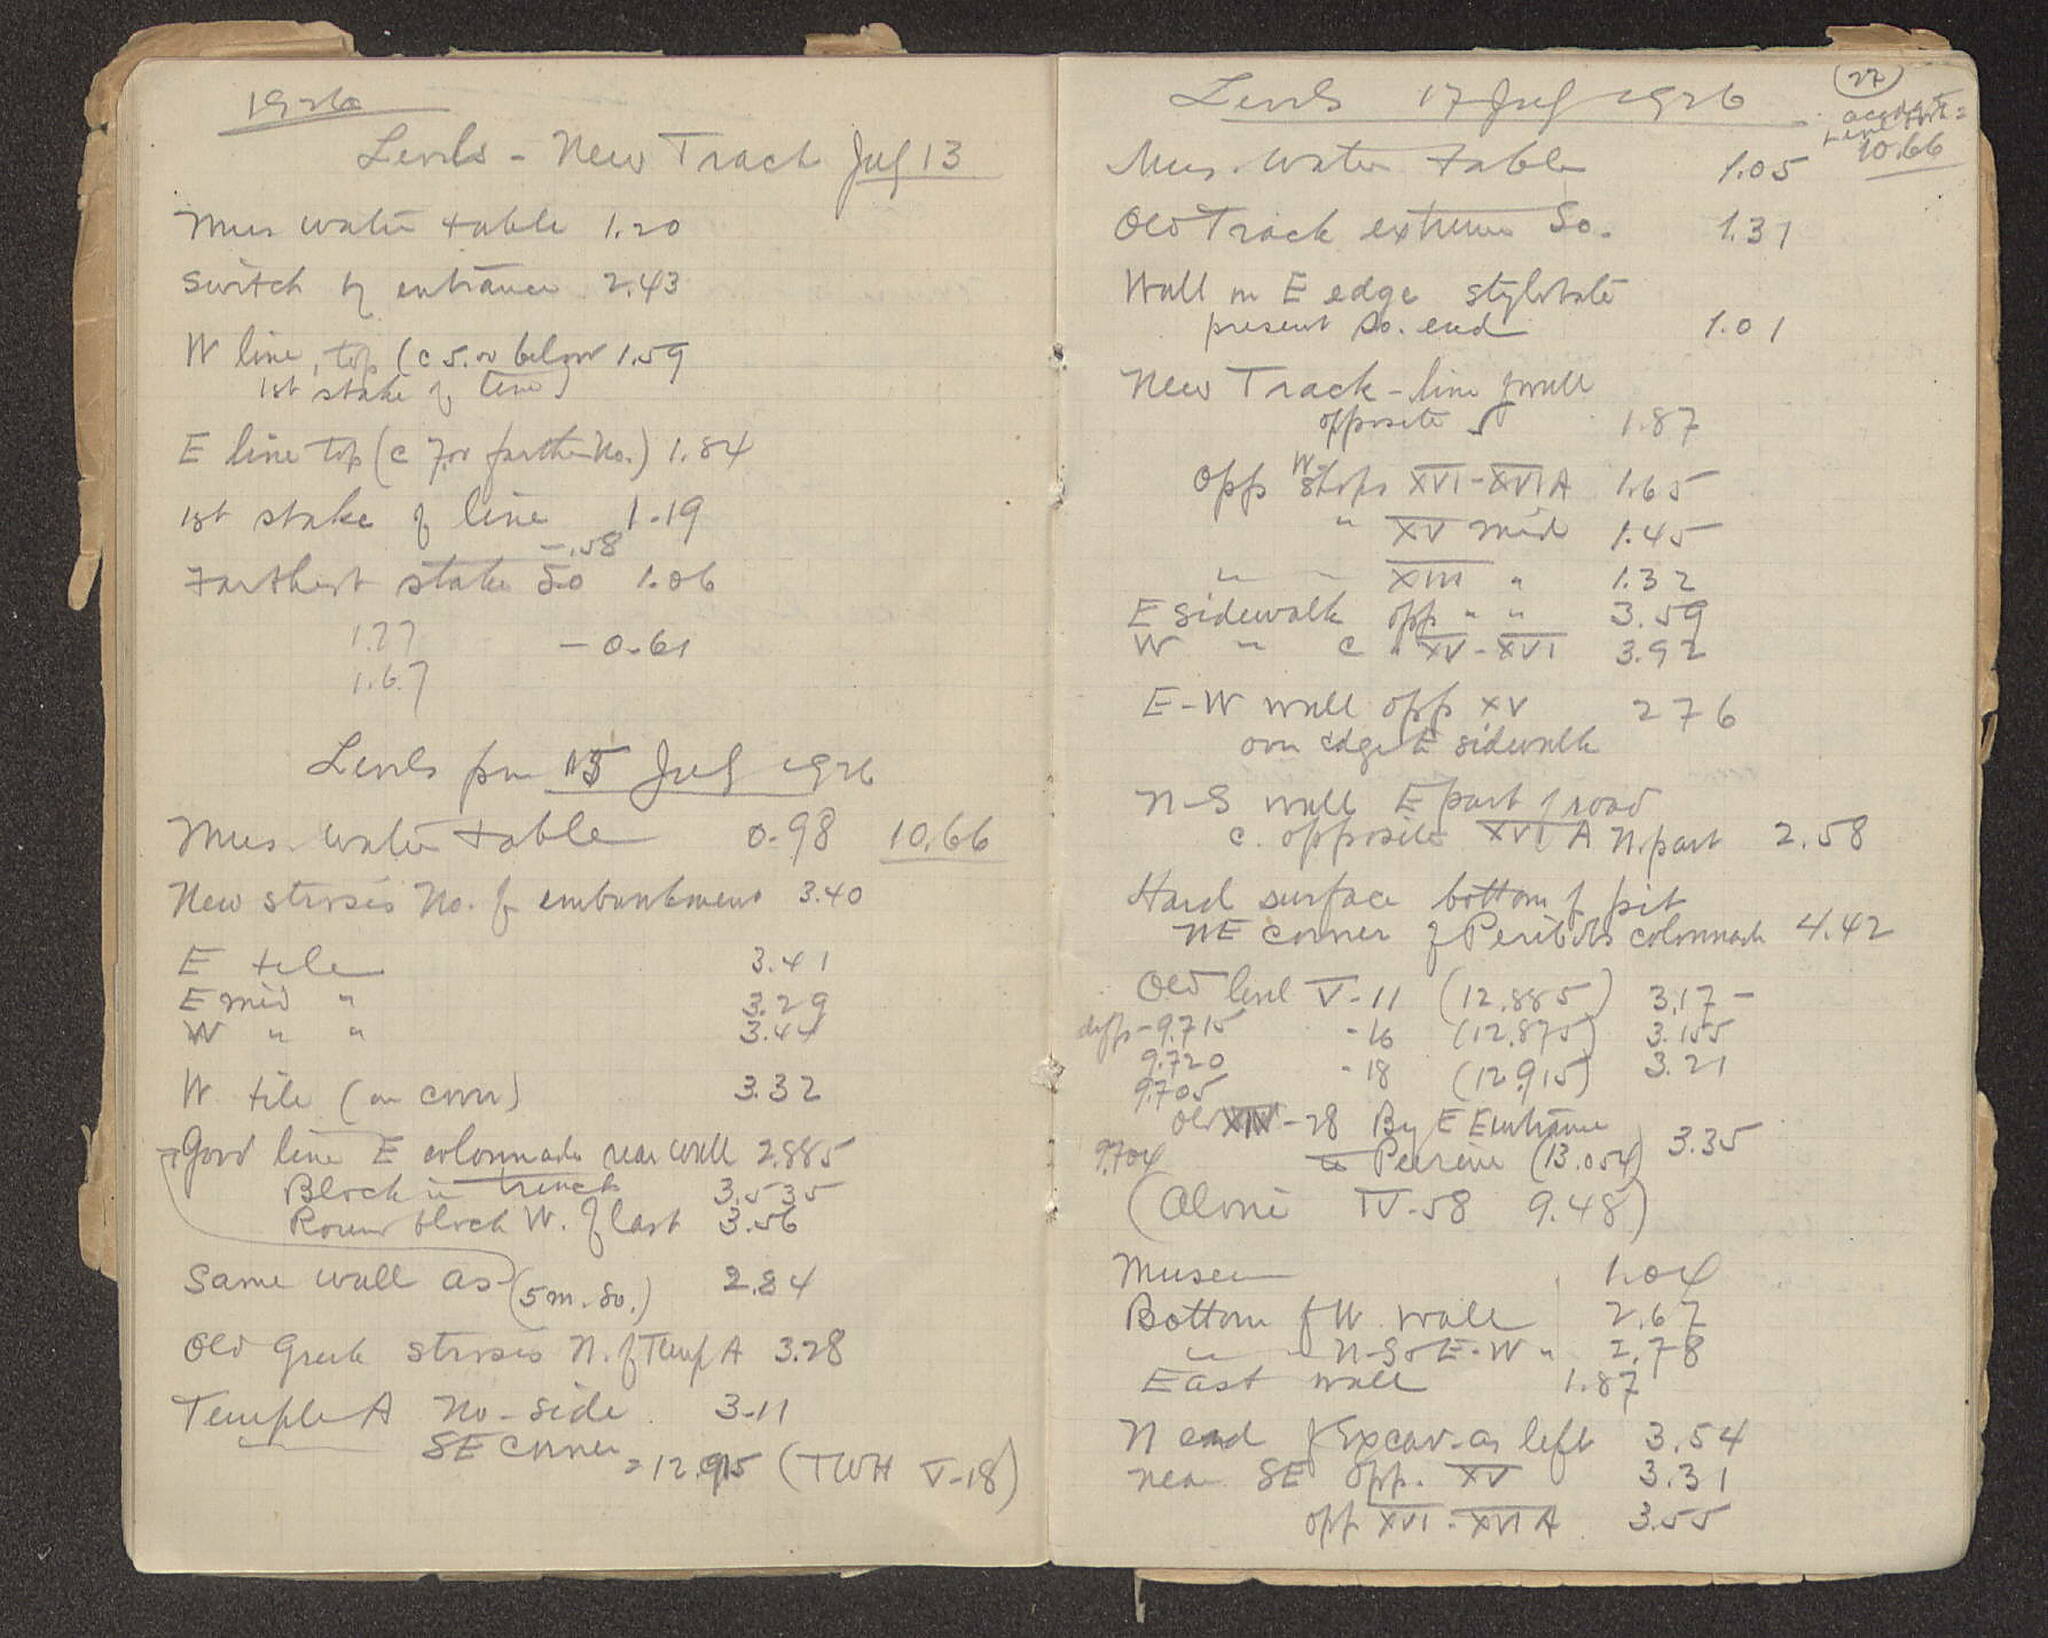 1926
Levels - New Track July 13
Mus water table 1.20
Switch by entrance 2.43
W line, top (c 5.00 below 1.59
1st stake of line)
E line top (c 7.00 farther No.) 1.84
1st stake of line 1.19
-.58
Farthest stake So 1.06
1.77 - 0.61
1.67
Levels pm 15 July 1926
Mus. water table 0.98 10.66
New strosis No. of embankment 3.40
E tile 3.41
E mid " 3.29
W " " 3.44
W tile (on corner) 3.32
Good line E colonnade rear wall 2.885
Block in trench 3.535
Round block W. of last 3.56
Same wall as (5 m. So.) 2.84
Old Greek strosis N. of Temp A 3.28
Temple A No-side 3.11
SE corner = 12.915 (TWH V-18)
27
Levels 17 July 1926
10.66
Mus. Water table 1.05
Old Track extreme So. 1.31
Wall on E edge stylobate
present So. end 1.01
New Track - line of wall
opposite 1.87
Opp W shops XVI-XVIA 1.65
" XV mid 1.45
" " XIII " 1.32
E sidewalk opp " " 3.59
W " c " XV-XVI 3.92
E-W wall opp XV 2 7 6
over edge E sidewalk
N-S wall E part of road
c. opposite XVI A N. part 2.58
Hard surface bottom of pit
NE corner of Peribolos colonnade 4.42
Old level V-11 (12.885) 3.17 -
diffs - 9.715 -16 (12.875) 3.155
9.720 -18 (12.915) 3.21
9.705
Old XIV-28 By E Entrance
9.704 to Peirene (13.054) 3.35
(Alone IV-58 9.48)
Museum 1.04
Bottom of W. wall 2.67
" " N-S or E-W " 2.78
East wall 1.87
N end of Excav. as left 3.54
near SE opp. XV 3.31
opp XVI-XVI A 3.55